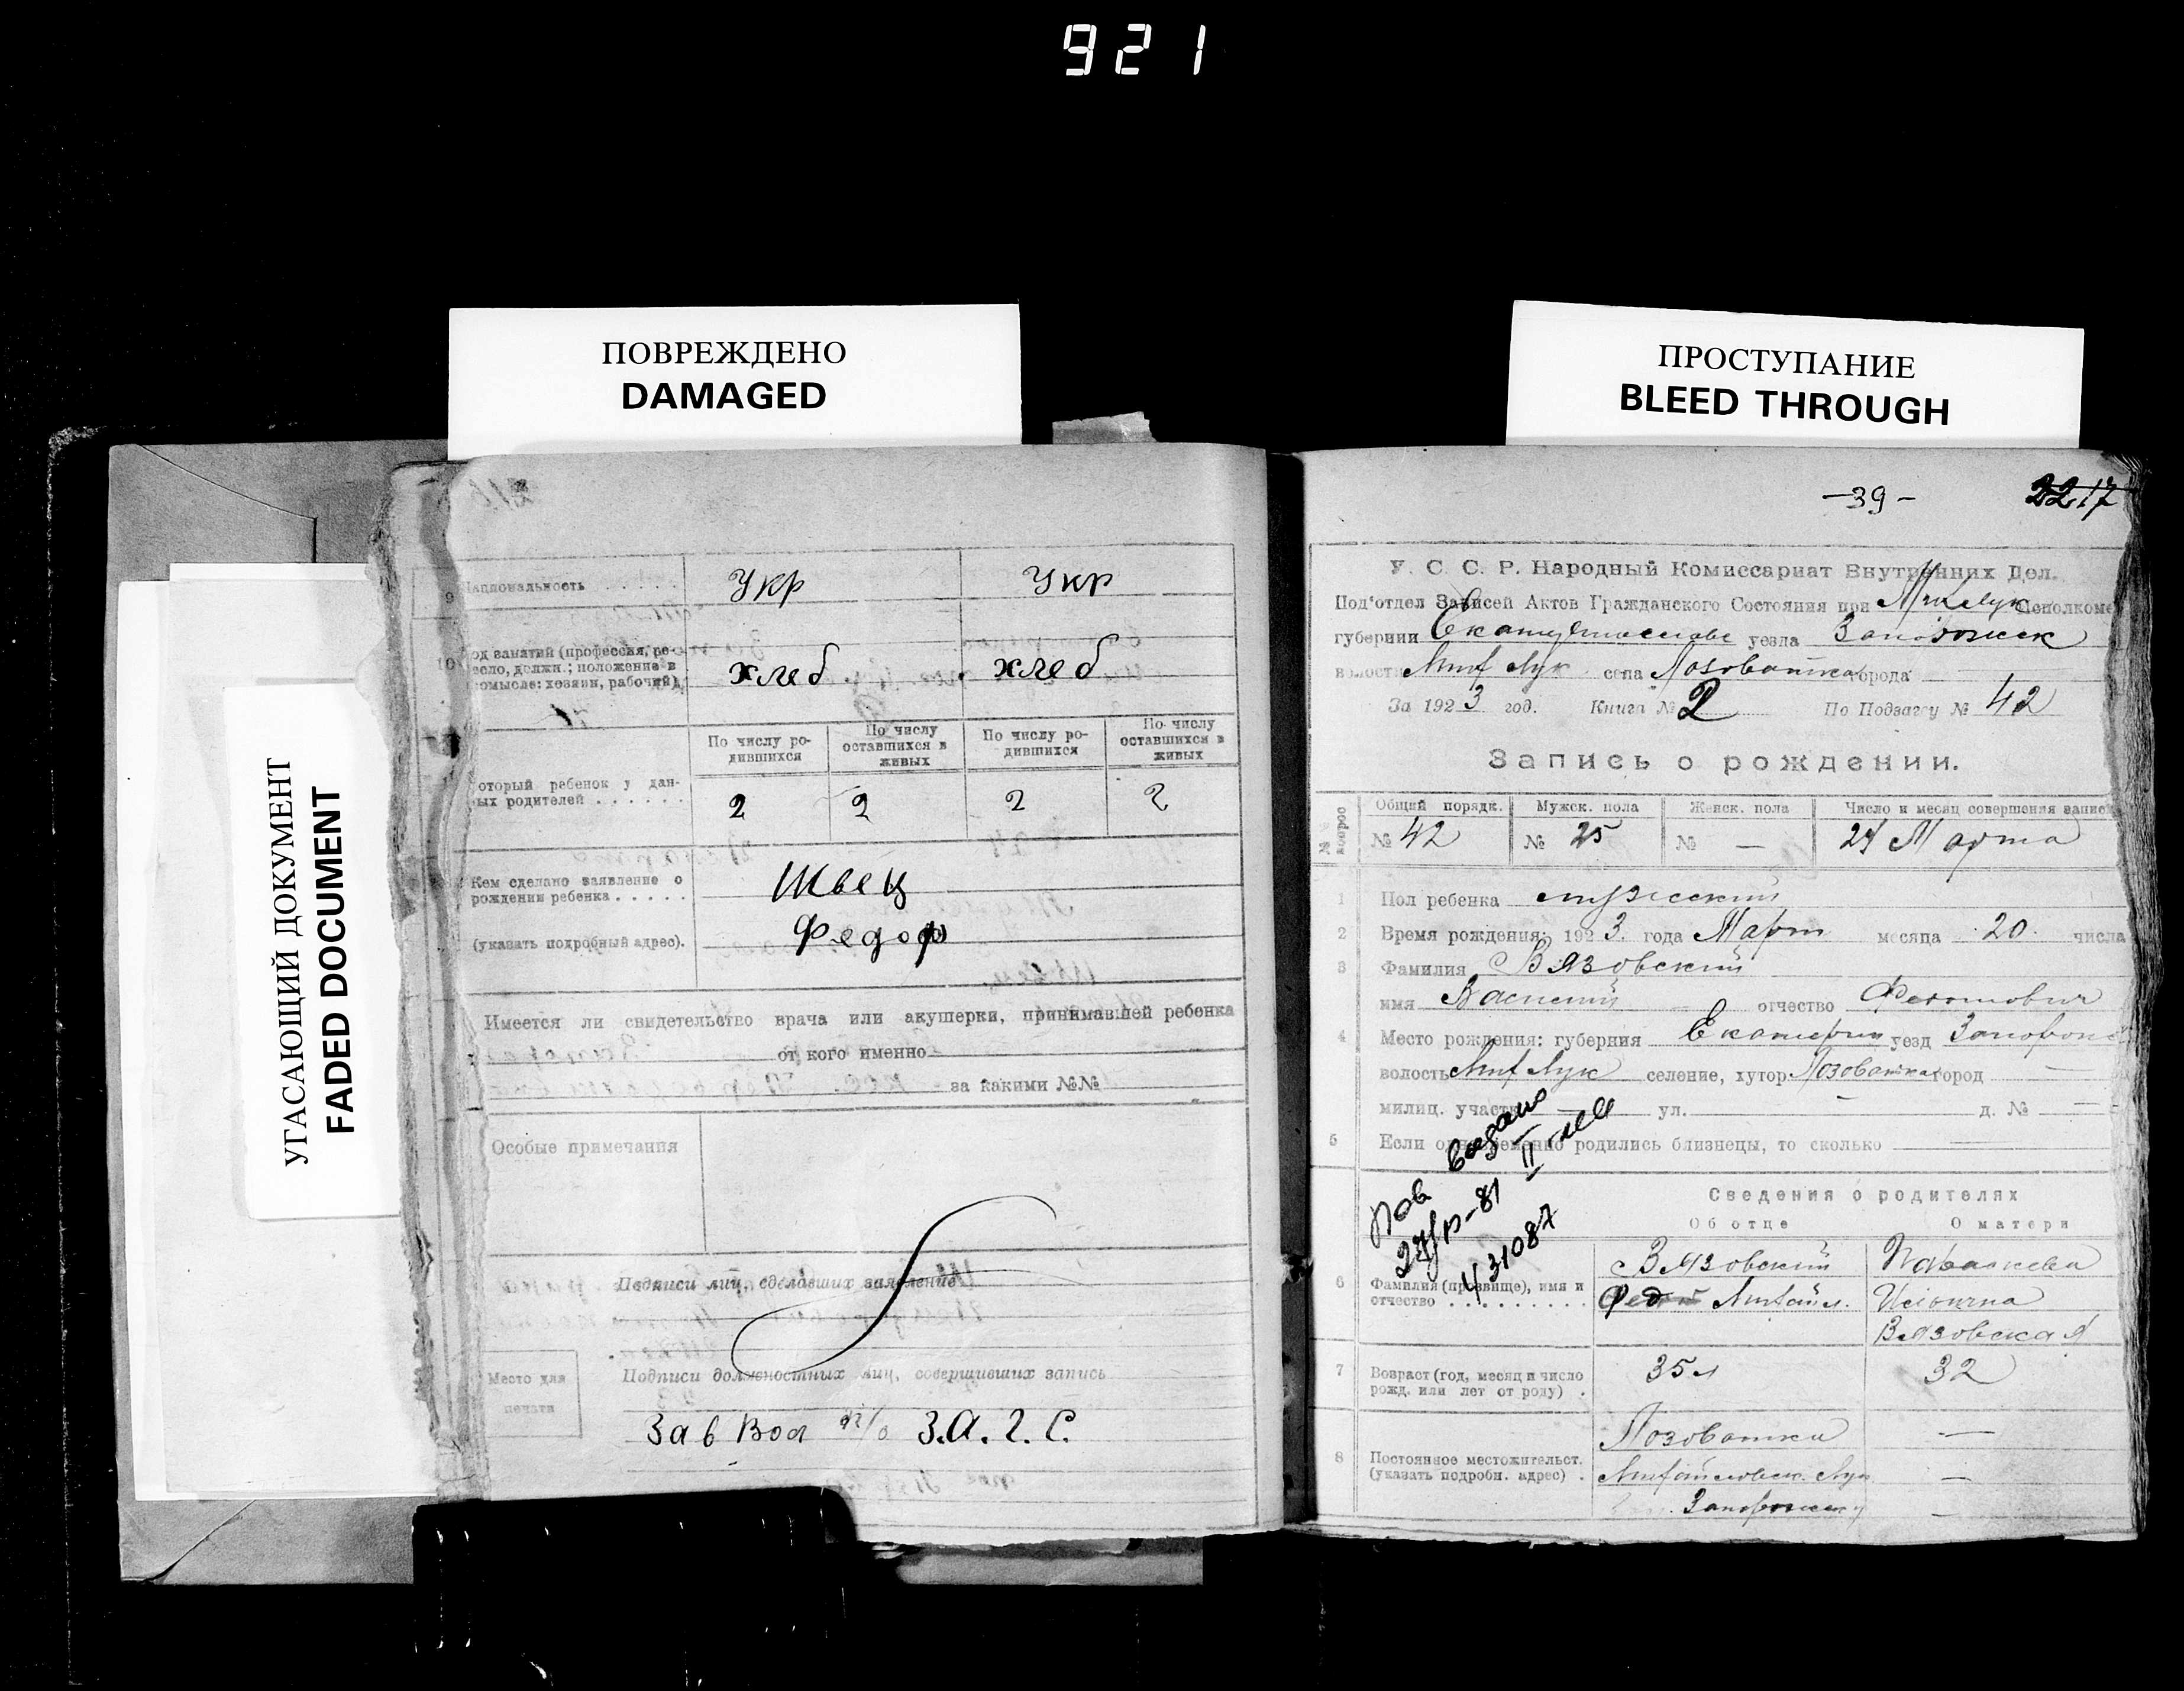 921
ПОВРЕЖДЕНО
DAMAGED
ПРОСТУПАНИЕ
BLEED THROUGH
УГАСАЮЩИЙ ДОКУМЕНТ
FADED DOCUMENT
9 Национальность . . . . . Укр Укр
10 од занятий (профессия, ре-
есло, должн.; положение в
ромысле: хозяин, рабочий) хлеб хлеб
По числу ро-
дившихся
По числу
оставшихся в
живых
По числу ро-
дившихся
По числу
оставшихся в
живых
оторый ребенок у дан-
ных родителей . . . . . . 2 2 2 2
Кем сделано заявление о
рождении ребенка . . . . .
(указать подробный адрес).
Швец
Федор
Имеется ли свидетельство врача или акушерки, принимавшей ребенка
от кого именно
за какими №№
Особые примечания
Подписи лиц, сделавших заявление
Место для
печати
Подписи должностных лиц, совершивших запись
Зав Вол п/о З.А.Г.С.
—39— 17
У. С. С. Р. Народный Комиссариат Внутренних Дел.
Под'отдел Записей Актов Гражданского Состояния при Исполкоме
губернии уезда
волости Мих Лук села Лозоватка города
За 1923 год. Книга № 2 По Подзагсу № 42
Запись о рождении.
Общий порядк. Мужск. пола Женск. пола Число и месяц совершения записи
№ 42 № 25 № — 27 Марта
1 Пол ребенка мужской
2 Время рождения: 1923. года Март месяца 20. числа
3 Фамилия Вязовский
имя Василий отчество
4 Место рождения: губерния Екатерин уезд
волость Мих Лук селение, хутор Лозоватка город —
милиц. участ — ул. — д. № —
5 Если одновременно родились близнецы, то сколько
Пов выдано
431087
Сведения о родителях
Об отце О матери
6 Фамилия (прозвище), имя и
отчество . . . . . . . . .
Вязовский
Михайл.
Вязовская
7 Возраст (год, месяц и число
рожд. или лет от роду) . 35 л 32
8 Постоянное местожительст.
(указать подробн. адрес) .
Лозоватка —
Михайловск. Лук —
—